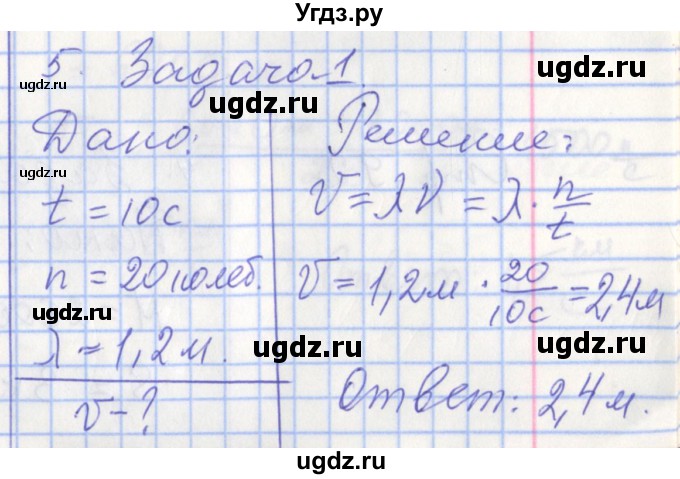 Угдз.ру
5. Задача 1.
ugdz.ru
ugdz.ru
Дано: Решение:
ugdz.ru
ugdz.ru
t = 10с v = λν = λ · n/t
ugdz.ru
n = 20 колеб. v = 1,2м · 20/10с = 2,4м
ugdz.ru
ugdz.ru
ugdz.ru
λ = 1,2м.
v - ? Ответ: 2,4м.
ugdz.ru
ugdz.ru